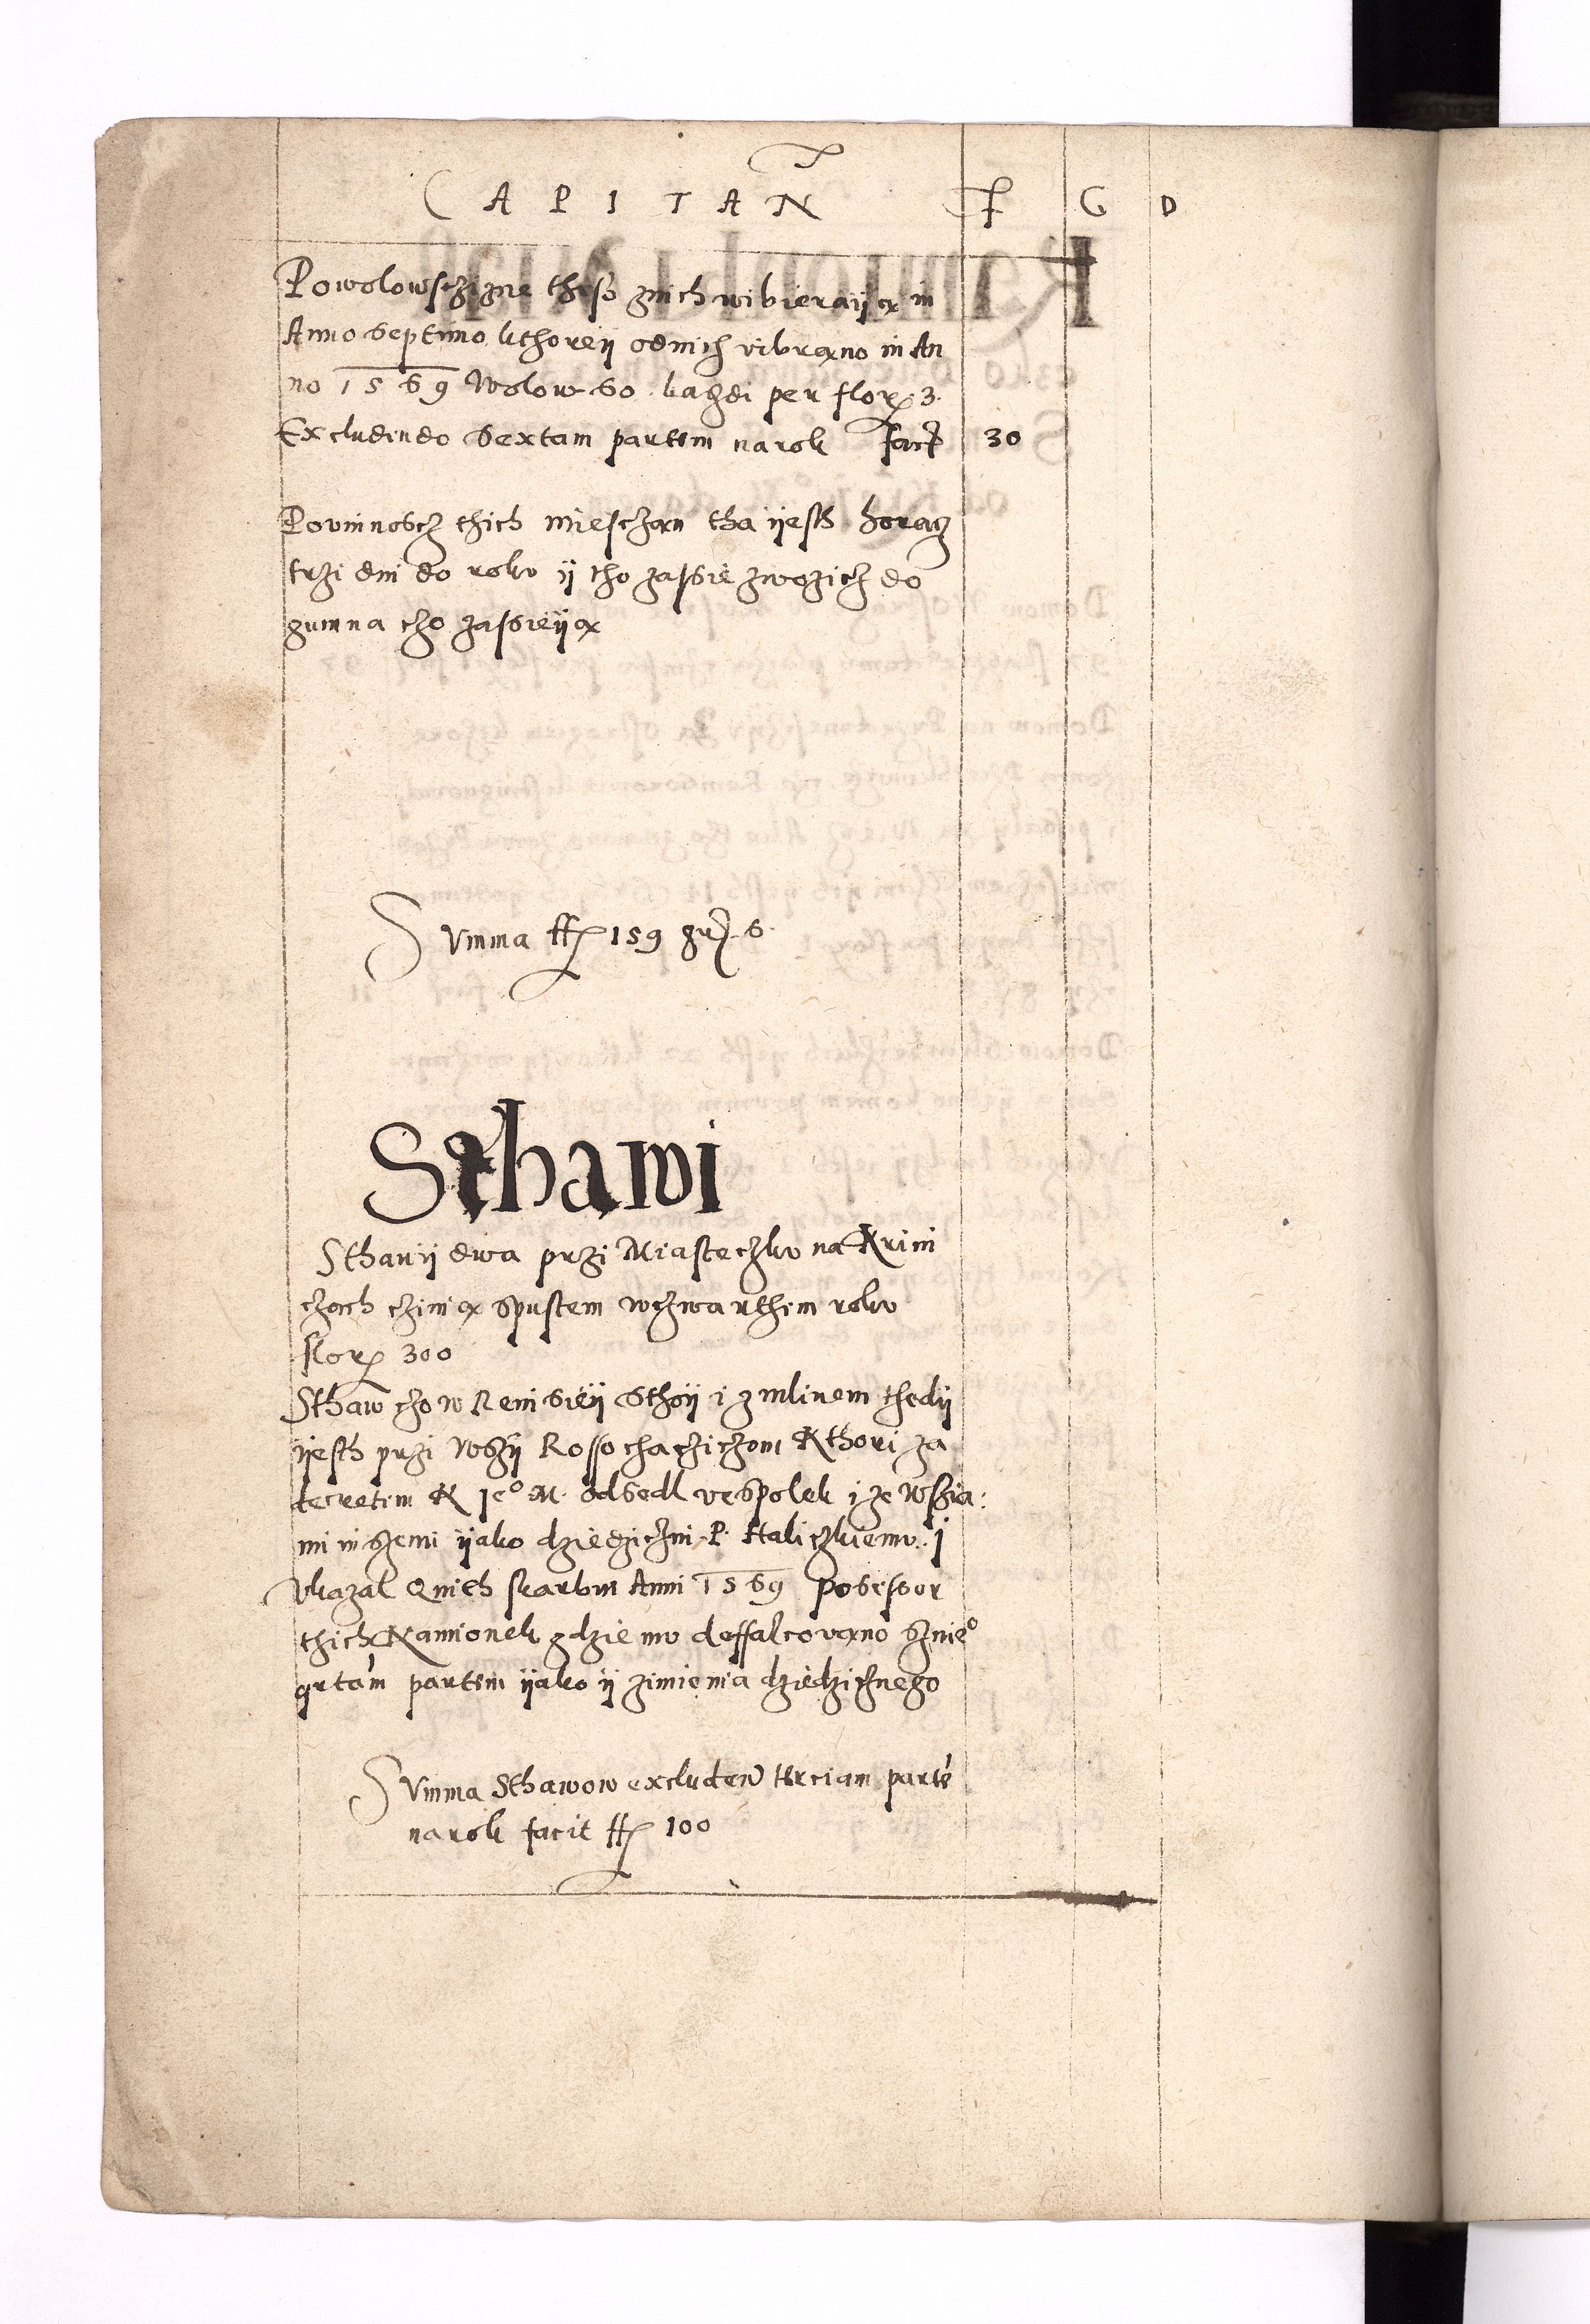 CAPITAN F G D
Powolowsczizne theso znich wibieraiją in
Anno septimo kthoreij odnich vibrano in An
no 1569 Wolow 60 kazdi per flor 3.
Excludendo sextam partem na rok facit 30
Povinnoscz thich miesczan tha ijesth horacz
trzi dni do roku ij tho zassie zwozicz do
gumna czo zassieiją
Summa ff 159 gr 6.
Sthawi
Sthawij dwa przi Miasteczku na Krini
czach czinią spustem wczwarthim roku
flor 300
Sthaw czo w Remisieij sthoij i z mlinem thedij
ijesth przi wsij Rossochacziczom Kthori za
decretem K Je° M. odsedl vespolek i ze wssia:
mi inszemi ijako dziedziczni P. Haliczkiemu. J
vkazal qnich skarbu Anni 1569 posessor
thich Kamionek gdzie mu deffalcovano sznie°
qrtam partem ijako ij zimienia dziedzicznego
Summa Sthawow excluden terciam parte
na rok facit ff 100